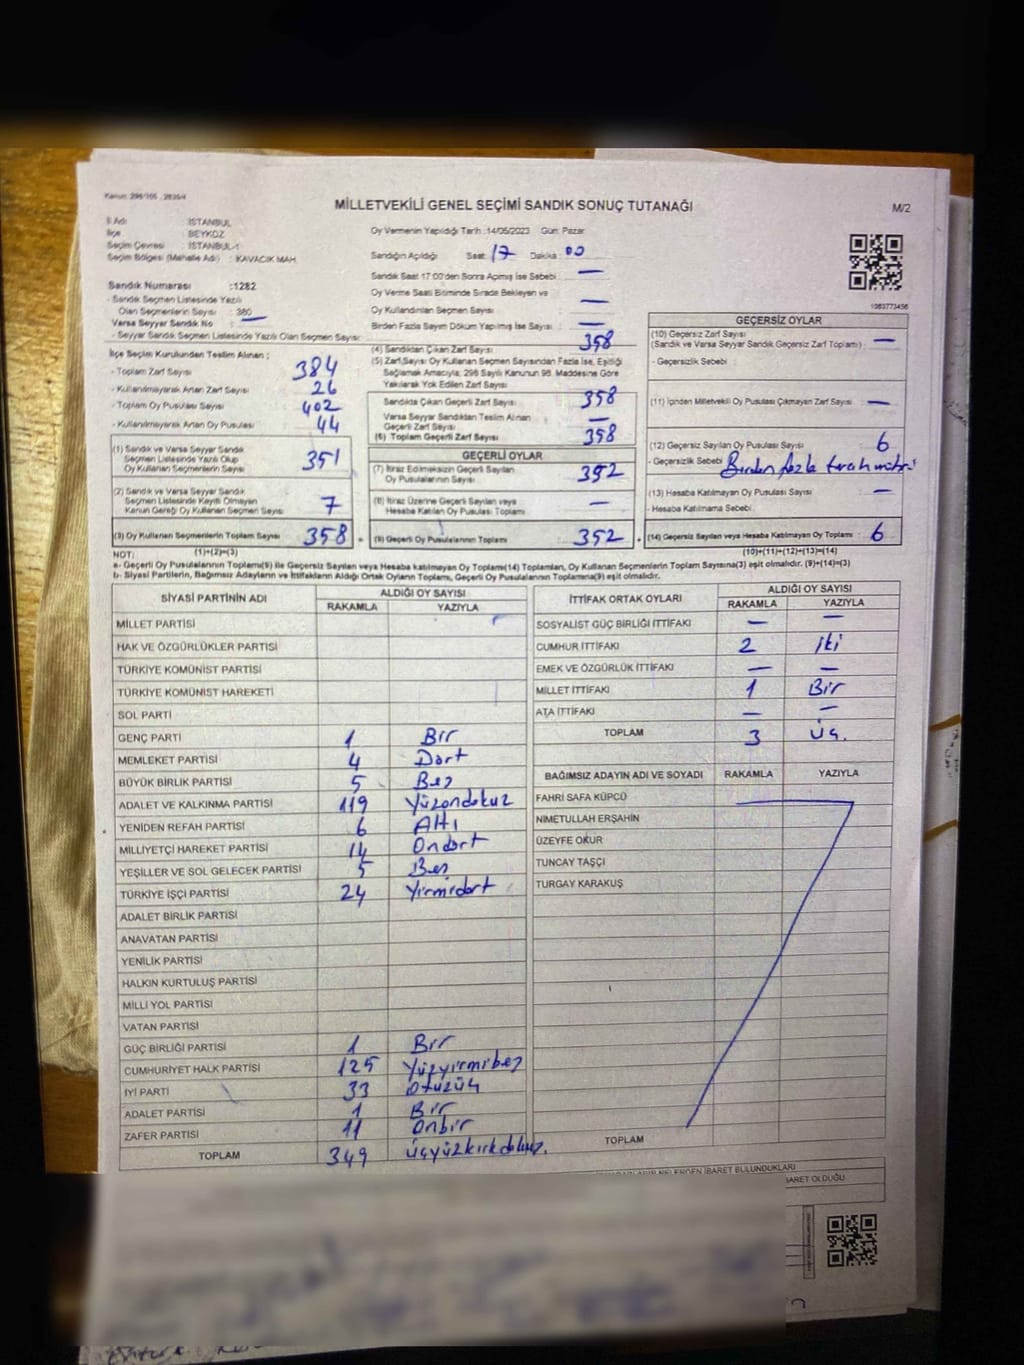 Kanun: 298/105 , 2839/4
MİLLETVEKİLİ GENEL SEÇİMİ SANDIK SONUÇ TUTANAĞI
M/2
İl Adı : İSTANBUL
İlçe : BEYKOZ
Seçim Çevresi : İSTANBUL-1
Seçim Bölgesi (Mahalle Adı) : KAVACIK MAH.
Sandık Numarası :1282
- Sandık Seçmen Listesinde Yazılı
Olan Seçmenlerin Sayısı : 380
Varsa Seyyar Sandık No : —
- Seyyar Sandık Seçmen Listesinde Yazılı Olan Seçmen Sayısı:
Oy Vermenin Yapıldığı Tarih :14/05/2023 Gün: Pazar
Sandığın Açıldığı Saat: 17 Dakika : 00
Sandık Saat 17:00'den Sonra Açılmış İse Sebebi : —
Oy Verme Saati Bitiminde Sırada Bekleyen ve
Oy Kullandırılan Seçmen Sayısı : —
Birden Fazla Sayım Döküm Yapılmış İse Sayısı : —
1083773456
İlçe Seçim Kurulundan Teslim Alınan ;
- Toplam Zarf Sayısı 384
- Kullanılmayarak Artan Zarf Sayısı 26
- Toplam Oy Pusulası Sayısı 402
- Kullanılmayarak Artan Oy Pusulası 44
(1) Sandık ve Varsa Seyyar Sandık
Seçmen Listesinde Yazılı Olup
Oy Kullanan Seçmenlerin Sayısı 351
(2) Sandık ve Varsa Seyyar Sandık
Seçmen Listesinde Kayıtlı Olmayan
Kanun Gereği Oy Kullanan Seçmen Sayısı 7
(3) Oy Kullanan Seçmenlerin Toplam Sayısı 358
(1)+(2)=(3)
(4) Sandıktan Çıkan Zarf Sayısı 358
(5) Zarf Sayısı Oy Kullanan Seçmen Sayısından Fazla İse, Eşitliği
Sağlamak Amacıyla, 298 Sayılı Kanunun 98. Maddesine Göre
Yakılarak Yok Edilen Zarf Sayısı
Sandıkta Çıkan Geçerli Zarf Sayısı 358
Varsa Seyyar Sandıktan Teslim Alınan
Geçerli Zarf Sayısı —
(6) Toplam Geçerli Zarf Sayısı 358
GEÇERLİ OYLAR
(7) İtiraz Edilmeksizin Geçerli Sayılan
Oy Pusulalarının Sayısı 352
(8) İtiraz Üzerine Geçerli Sayılan veya
Hesaba Katılan Oy Pusulası Toplamı —
(9) Geçerli Oy Pusulalarının Toplamı 352
GEÇERSİZ OYLAR
(10) Geçersiz Zarf Sayısı
(Sandık ve Varsa Seyyar Sandık Geçersiz Zarf Toplamı) : —
- Geçersizlik Sebebi :
(11) İçinden Milletvekili Oy Pusulası Çıkmayan Zarf Sayısı —
(12) Geçersiz Sayılan Oy Pusulası Sayısı 6
- Geçersizlik Sebebi : Birden fazla tercih mührü
(13) Hesaba Katılmayan Oy Pusulası Sayısı —
- Hesaba Katılmama Sebebi :
(14) Geçersiz Sayılan veya Hesaba Katılmayan Oy Toplamı 6
(10)+(11)+(12)+(13)=(14)
NOT:
a- Geçerli Oy Pusulalarının Toplamı(9) ile Geçersiz Sayılan veya Hesaba katılmayan Oy Toplamı(14) Toplamları, Oy Kullanan Seçmenlerin Toplam Sayısına(3) eşit olmalıdır. (9)+(14)=(3)
b- Siyasi Partilerin, Bağımsız Adayların ve İttifakların Aldığı Ortak Oyların Toplamı, Geçerli Oy Pusulalarının Toplamına(9) eşit olmalıdır.
SİYASİ PARTİNİN ADI ALDIĞI OY SAYISI
RAKAMLA YAZIYLA
MİLLET PARTİSİ
HAK VE ÖZGÜRLÜKLER PARTİSİ
TÜRKİYE KOMÜNİST PARTİSİ
TÜRKİYE KOMÜNİST HAREKETİ
SOL PARTİ
GENÇ PARTİ 1 Bir
MEMLEKET PARTİSİ 4 Dört
BÜYÜK BİRLİK PARTİSİ 5 Beş
ADALET VE KALKINMA PARTİSİ 119 Yüzondokuz
YENİDEN REFAH PARTİSİ 6 Altı
MİLLİYETÇİ HAREKET PARTİSİ 14 Ondört
YEŞİLLER VE SOL GELECEK PARTİSİ 5 Beş
TÜRKİYE İŞÇİ PARTİSİ 24 Yirmidört
ADALET BİRLİK PARTİSİ
ANAVATAN PARTİSİ
YENİLİK PARTİSİ
HALKIN KURTULUŞ PARTİSİ
MİLLİ YOL PARTİSİ
VATAN PARTİSİ
GÜÇ BİRLİĞİ PARTİSİ 1 Bir
CUMHURİYET HALK PARTİSİ 125 Yüzyirmibeş
İYİ PARTİ 33 Otuzüç
ADALET PARTİSİ 1 Bir
ZAFER PARTİSİ 11 Onbir
TOPLAM 349 Üçyüzkırkdokuz.
İTTİFAK ORTAK OYLARI ALDIĞI OY SAYISI
RAKAMLA YAZIYLA
SOSYALİST GÜÇ BİRLİĞİ İTTİFAKI — —
CUMHUR İTTİFAKI 2 iki
EMEK VE ÖZGÜRLÜK İTTİFAKI — —
MİLLET İTTİFAKI 1 Bir
ATA İTTİFAKI — —
TOPLAM 3 Üç.
BAĞIMSIZ ADAYIN ADI VE SOYADI RAKAMLA YAZIYLA
FAHRİ SAFA KÜPCÜ
NİMETULLAH ERŞAHİN
ÜZEYFE OKUR
TUNCAY TAŞÇI
TURGAY KARAKUŞ
TOPLAM
İBARET BULUNDUKLARI
İBARET OLDUĞU